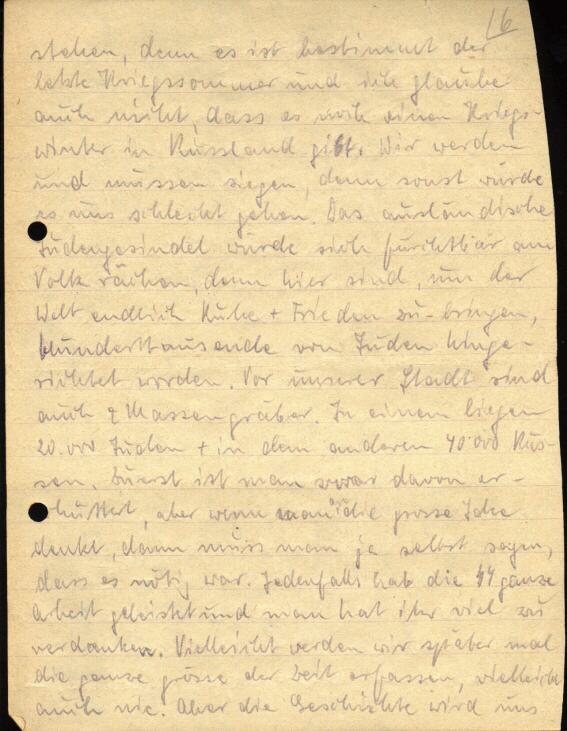 16
stehen, denn es ist bestimmt der
letzte Kriegssommer und ich glaube
auch nicht, dass es noch einen Kriegs-
winter in Russland gibt. Wir werden
und müssen siegen, denn sonst würde
es uns schlecht gehen. Das ausländische
Judengesindel würde sich furchtbar am
Volk rächen, denn hier sind, um der
Welt endlich Ruhe + Frieden zu bringen,
hunderttausende von Juden hinge-
richtet worden. Vor unserer Stadt sind
auch 2 Massengräber. In einem liegen
20.000 Juden + in dem anderen 40.000 Rus-
sen. Zuerst ist man zwar davon er-
schüttert, aber wenn man an die grosse Idee
denkt, dann muss man ja selbst sagen,
dass es nötig war. Jedenfalls hab die SS ganze
Arbeit geleistet und man hat ihr viel zu
verdanken. Vielleicht werden wir später mal
die ganze grösse der Zeit erfassen, vielleicht
auch nie. Aber die Geschichte wird uns